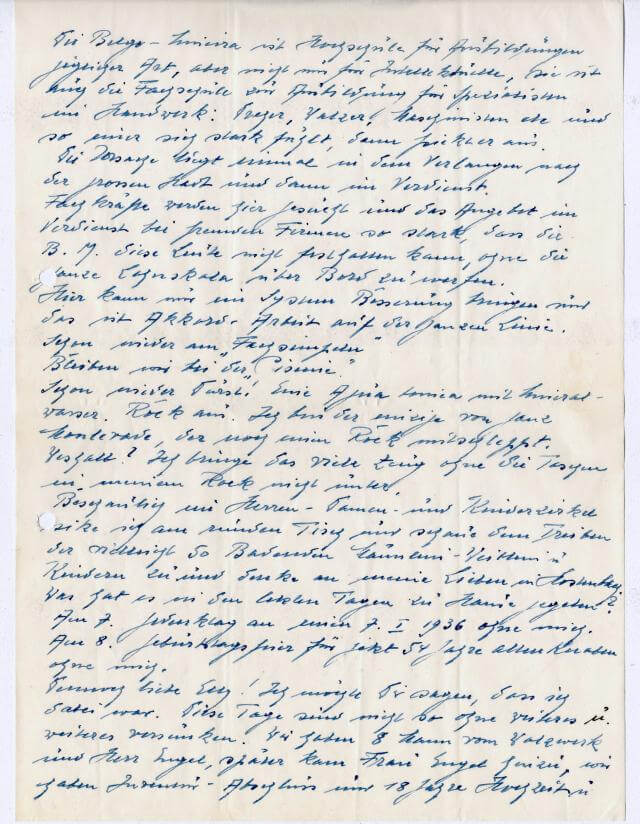 Die Belgo-Mineira ist Hochschule für Ausbildungen
jeglicher Art, aber nicht nur für Intellektuelle, sie ist
auch die Fachschule zur Ausbildung für Spezialisten
im Handwerk: Dreher, Walzer, Maschinisten etc und
so einer sich stark fühlt, dann rückt er aus.
Die Ursache liegt einmal in dem Verlangen nach
der grossen Stadt und dann im Verdienst.
Fachkräfte werden hier gesucht und das Angebot im
Verdienst bei fremden Firmen so stark, dass die
B. M. diese Leute nicht festhalten kann, ohne die
ganze Lohnskala über Bord zu werfen.
Hier kann nur ein System Besserung bringen und
das ist Akkord-Arbeit auf der ganzen Linie.
Schon wieder am "Fachsimpeln"
Bleiben wir bei der "Piscine."
Schon wieder Durst! Eine Agua tonica mit Mineral-
wasser. Rock aus. Ich bin der einzige von ganz
Monlevade, der noch einen Rock mitschleppt.
Weshalb? Ich bringe das viele Zeug ohne die Taschen
in meinem Rock nicht unter.
Beschaulich im Herren- Damen- und Kinderzirkel
sitze ich am runden Tisch und schaue dem Treiben
der vielleicht 50 Badenden Männlein-Weiblein u
Kindern zu und denke an meine Lieben in
Was hat es in den letzten Tagen zu Hause gegeben?
Am 7. Jahrestag an einen 7. I 1936 ohne mich.
Am 8. Geburtstagsfeier für jetzt 54 Jahre alten Knaben
ohne mich.
Dennoch liebe Elly! Ich möchte Dir sagen, dass ich
dabei war. Diese Tage sind nicht so ohne weiteres u.
weiteres versunken. Wir haben 8 Mann vom Walzwerk
und Herr Engel, später kam Frau Engel hinzu, wir
haben Inventur-Abschluss und 18 Jahre Hochzeit u